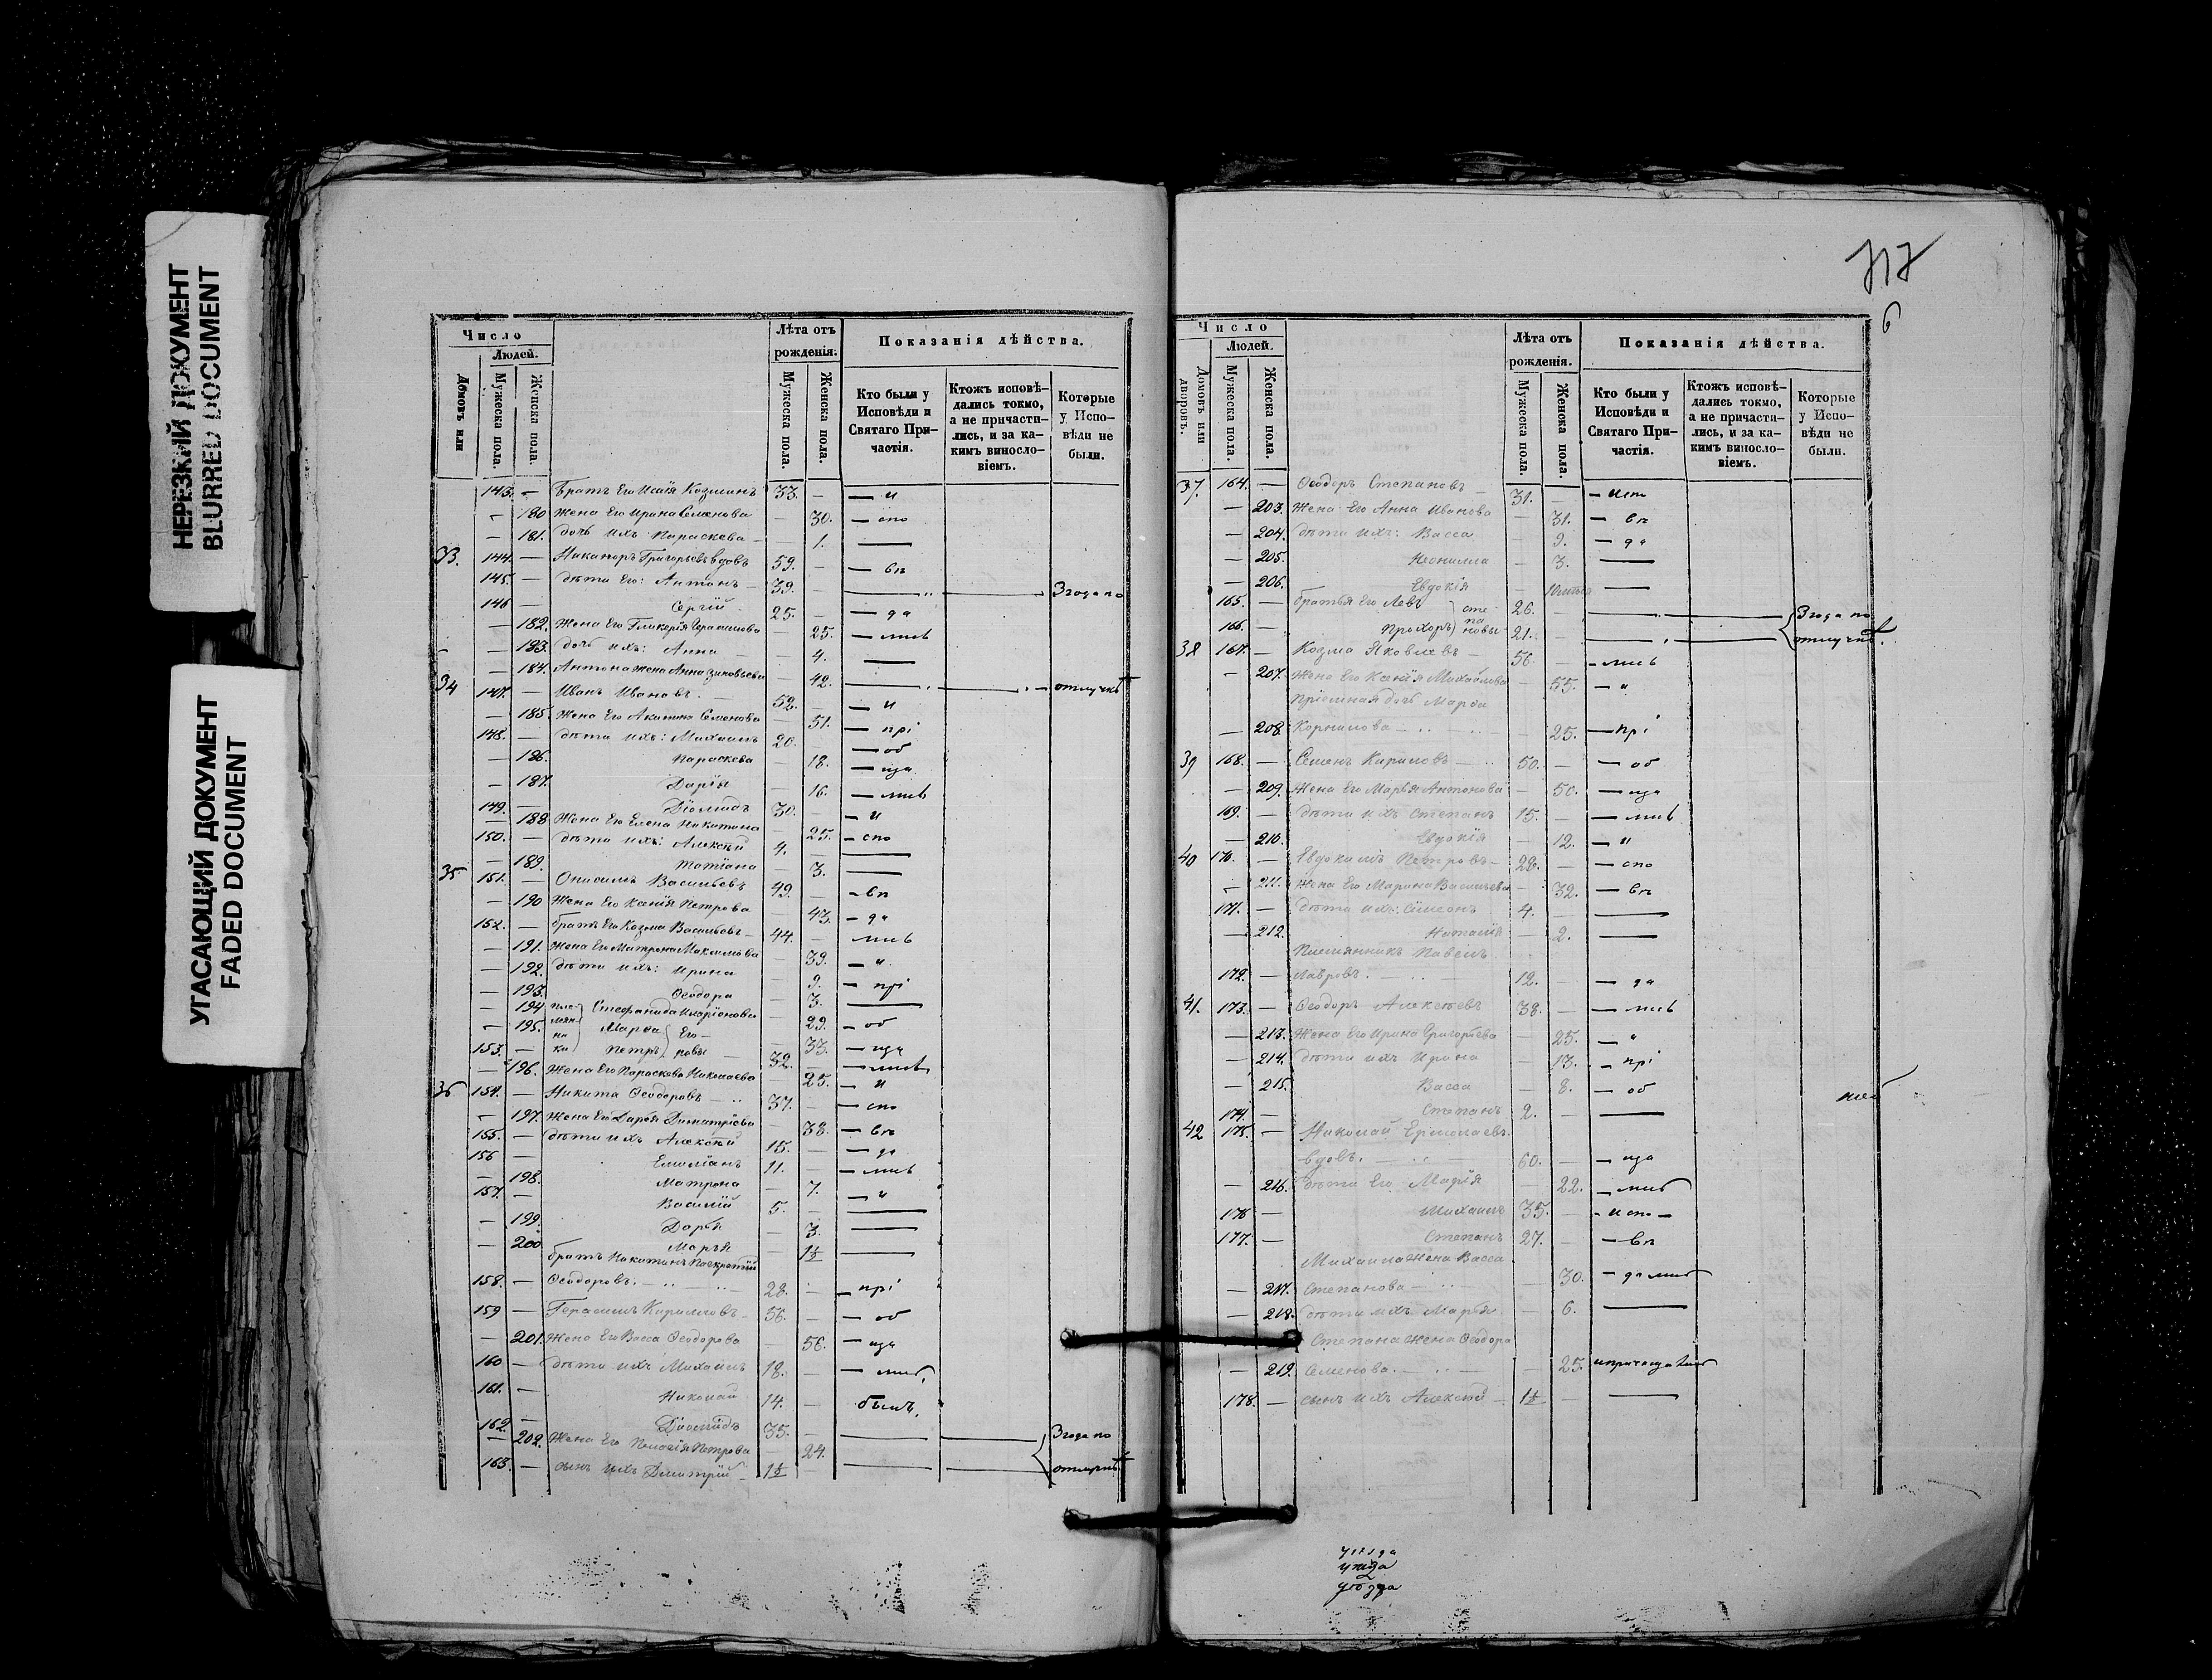 НЕРЕЗКИЙ ДОКУМЕНТ
BLURRED DOCUMENT
УГАСАЮЩИЙ ДОКУМЕНТ
FADED DOCUMENT
Число
Людей.
Домовъ или
Мужеска пола.
Женска пола.
Лѣта отъ
рожденія.
Мужеска пола.
Женска пола.
Показанія дѣйства.
Кто были у
Исповѣди и
Святаго При-
частія.
Ктожъ исповѣ-
дались токмо,
а не причасти-
лись, и за ка-
кимъ винословіемъ.
Которые
у Испо-
вѣди не
были.
143. — Братъ Его Исаія Козминъ 33. — — и
— 180 Жена Его Ирина Семенова — 30. — спо
— 181. дочь ихъ Параскева — — 1. —
33. 144. — Никаноръ Григорьевъ вдовъ 59. — — вѣ
145. — дѣти Его: Антонъ — 39. — — — 3 года по
146 — Сергій 25. — — да
— 182. Жена Его Гликерія Герасимова — 25. — лись
— 183. дочь ихъ: Анна — — 4. —
— 184. Антона жена Анна Зиновьева — 42. — — отлучкѣ
34 147. — Иванъ Ивановъ. — 52. — — и
— 185. Жена Его Акилина Семенова — 51. — прі
148. — дѣти ихъ: Михаилъ 20. — — об
— 186. Параскева — 18. — ща
— 187. Дарія — 16. — лись
149. — Діомидъ 30. — — и
— 188 Жена Его Елена Никитина — 25. — спо
150. — дѣти ихъ: Алексѣй 4. — —
— 189. Татіана — 3. —
35 151. — Онисимъ Васильевъ 49. — — вѣ
— 190 Жена Его Ксенія Петрова — 43. — да
152. — братъ Его Козма Васильевъ — 44. — лись
— 191. Жена Его Матрона Максимова — 39. — и
— 192. дѣти ихъ: Ирина — 9. — прі
— 193. Ѳеодора — 3. —
— 194 пле- Стефанида Иларіонова — 29. — об
— 195. мян- Марѳа Его- — 33. — ща
153. — ни- ки Петръ ровы 32. — — лись
— 196. Жена Его Параскева Николаева — 25. — и
36 154. — Никита Ѳеодоровъ — 37. — — спо
— 197. Жена Его Дарья Димитріева — 38. — вѣ
155. — дѣти ихъ Алексѣй 15. — — да
156 — Емиліанъ 11. — — лись
— 198. Матрона — 7. — и
157. — Василій 5. — —
— 199. Дарья — 3. —
— 200 Марья — 1½ —
братъ Никитинъ Панкратій
158. — Ѳеодоровъ. — 28. — — прі
159 — Герасимъ Кириловъ — 56. — — об
— 201. Жена Его Васса Ѳеодорова — 56. — ща
160 — дѣти ихъ Михаилъ 18. — — лись
161. — Николай 14. — были.
162. — Діомидъ 35. — — — 3 года по
— 202. Жена Его Пелагія Петрова — 24.
163. — сынъ ихъ Димитрій — 1½ — — — отлучкѣ
717
6
Число
Людей.
Домовъ или
дворовъ.
Мужеска пола.
Женска пола.
Лѣта отъ
рожденія.
Мужеска пола.
Женска пола.
Показанія дѣйства.
Кто были у
Исповѣди и
Святаго При-
частія.
Ктожъ исповѣ-
дались токмо,
а не причасти-
лись, и за ка-
кимъ винословіемъ.
Которые
у Испо-
вѣди не
были.
37. 164. — Ѳеодоръ Степановъ — 31. — — испо
— 203. Жена Его Анна Иванова 31. — вѣ
— 204. дѣти ихъ: Васса — 9. — да
— 205. Неонилла — 3. —
— 206. Евдокія —
165. — братья Его Левъ Сте- 26. — — — 3 года по
166. — Прохоръ па- новы 21. — — — отлучкѣ.
38 167. — Козма Яковлевъ — 56. — — лись
— 207. Жена Его Ксенія Михайлова — 55. — и
Пріемная дочь Марѳа
— 208. Корнилова — — 25. — прі
39 168. — Семенъ Кириловъ — 50. — — об
— 209. Жена Его Марья Антонова — 50. — ща
169. — дѣти ихъ Степанъ 15. — — лись
— 210. Евдокія — 12. — и
40 170. — Евдокимъ Петровъ — 28. — — спо
— 211. Жена Его Марина Васильева — 32. — вѣ
171. — дѣти ихъ: Симеонъ 4. — —
— 212. Наталія — 2. —
Племянникъ Павелъ
172. — Лавровъ. — 12. — — да
41. 173. — Ѳеодоръ Алексѣевъ 38. — — лись
— 213. Жена Его Ирина Григорьева — 25. — и
— 214. дѣти ихъ Ирина — 13. — прі
— 215. Васса — 8. — об
174. — Степанъ 2. — —
42 175. — Николай Ермолаевъ
вдовъ. — 60. — — ща
— 216. дѣти Его Марія — 22. — лись
176 — Михаилъ 35. — — испо —
177. — Степанъ 27. — — вѣ
Михаила жена Васса
— 217. Степанова — — 30. — да лись
— 218. дѣти ихъ Марья — 6. —
Степана жена Ѳеодора
— 219. Семенова. — — 25. и причащались
178. — сынъ ихъ Алексѣй — 1½ — —